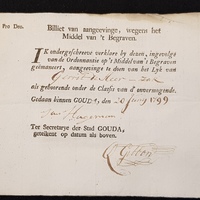 Pro Deo.
Billiet van aangeevinge, wegens het
Middel van 't Begraven.
IK ondergeschreve verklare by dezen, ingevolge
van de Ordonnantie op 't Middel van 't Begraven
geëmaneert, aangeevinge te doen van het Lyk van
als gehoorende onder de Classis van d'onvermogende.
Gedaan binnen GOUDA, den 20 Juny 1799
Jan
Ter Secretarye der Stad GOUDA,
geteikent op datum als boven.